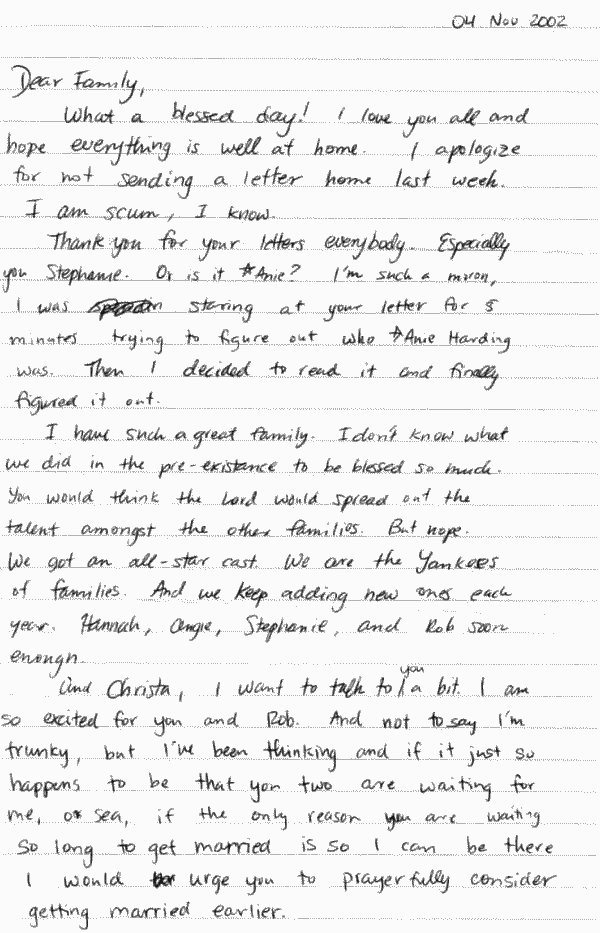 04 Nov 2002
Dear Family,
What a blessed day! I love you all and
hope everything is well at home. I apologize
for not sending a letter home last week.
I am scum, I know.
Thank you for your letters everybody. Especially
you Stephanie. Or is it ☆Anie? I'm such a moron,
I was staring at your letter for 5
minutes trying to figure out who ☆Anie Harding
was. Then I decided to read it and finally
figured it out.
I have such a great family. I don't know what
we did in the pre-existance to be blessed so much.
You would think the Lord would spread out the
talent amongst the other families. But nope.
We got an all-star cast. We are the Yankees
of families. And we keep adding new ones each
year. Hannah, Angie, Stephanie, and Rob soon
enough.
And Christa, I want to talk to you a bit. I am
so excited for you and Rob. And not to say I'm
trunky, but I've been thinking and if it just so
happens to be that you two are waiting for
me, or sea, if the only reason you are waiting
so long to get married is so I can be there
I would urge you to prayerfully consider
getting married earlier.